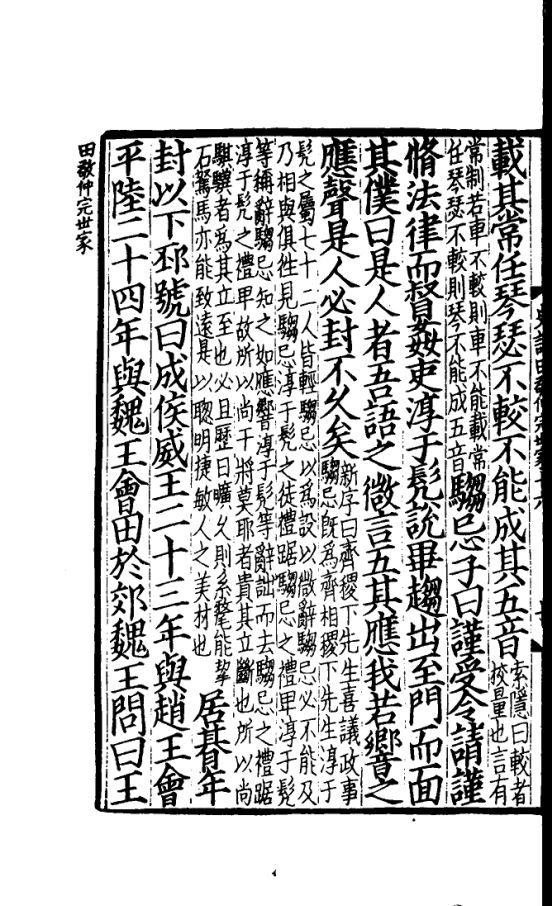 載其常任琴瑟不較不能成其五音
索隱曰較者
挍量也言有
常制若車不較則車不能載常
任琴瑟不較則琴不能成五音
騶忌子曰謹受令請謹
脩法律而督姦吏淳于髡說畢趨出至門而面
其僕曰是人者吾語之微言五其應我若響之
應聲是人必封不久矣
新序曰齊稷下先生喜議政事
騶忌旣為齊相稷下先生淳于
髡之屬七十二人皆輕騶忌以為設以微辭騶忌必不能及
乃相與俱徃見騶忌淳于髡之徒禮踞騶忌之禮卑淳于髡
等稱辭騶忌知之如應響淳于髡等辭詘而去騶忌之禮踞
淳于髡之禮卑故所以尚干將莫耶者貴其立斷也所以尚
騏驥者為其立至也必且歷日曠久則系氂能挈
石駑馬亦能致遠是以聦明捷敏人之美材也
居朞年
封以下邳號曰成侯威王二十三年與趙王會
平陸二十四年與魏王會田於郊魏王問曰王
田敬仲完世家